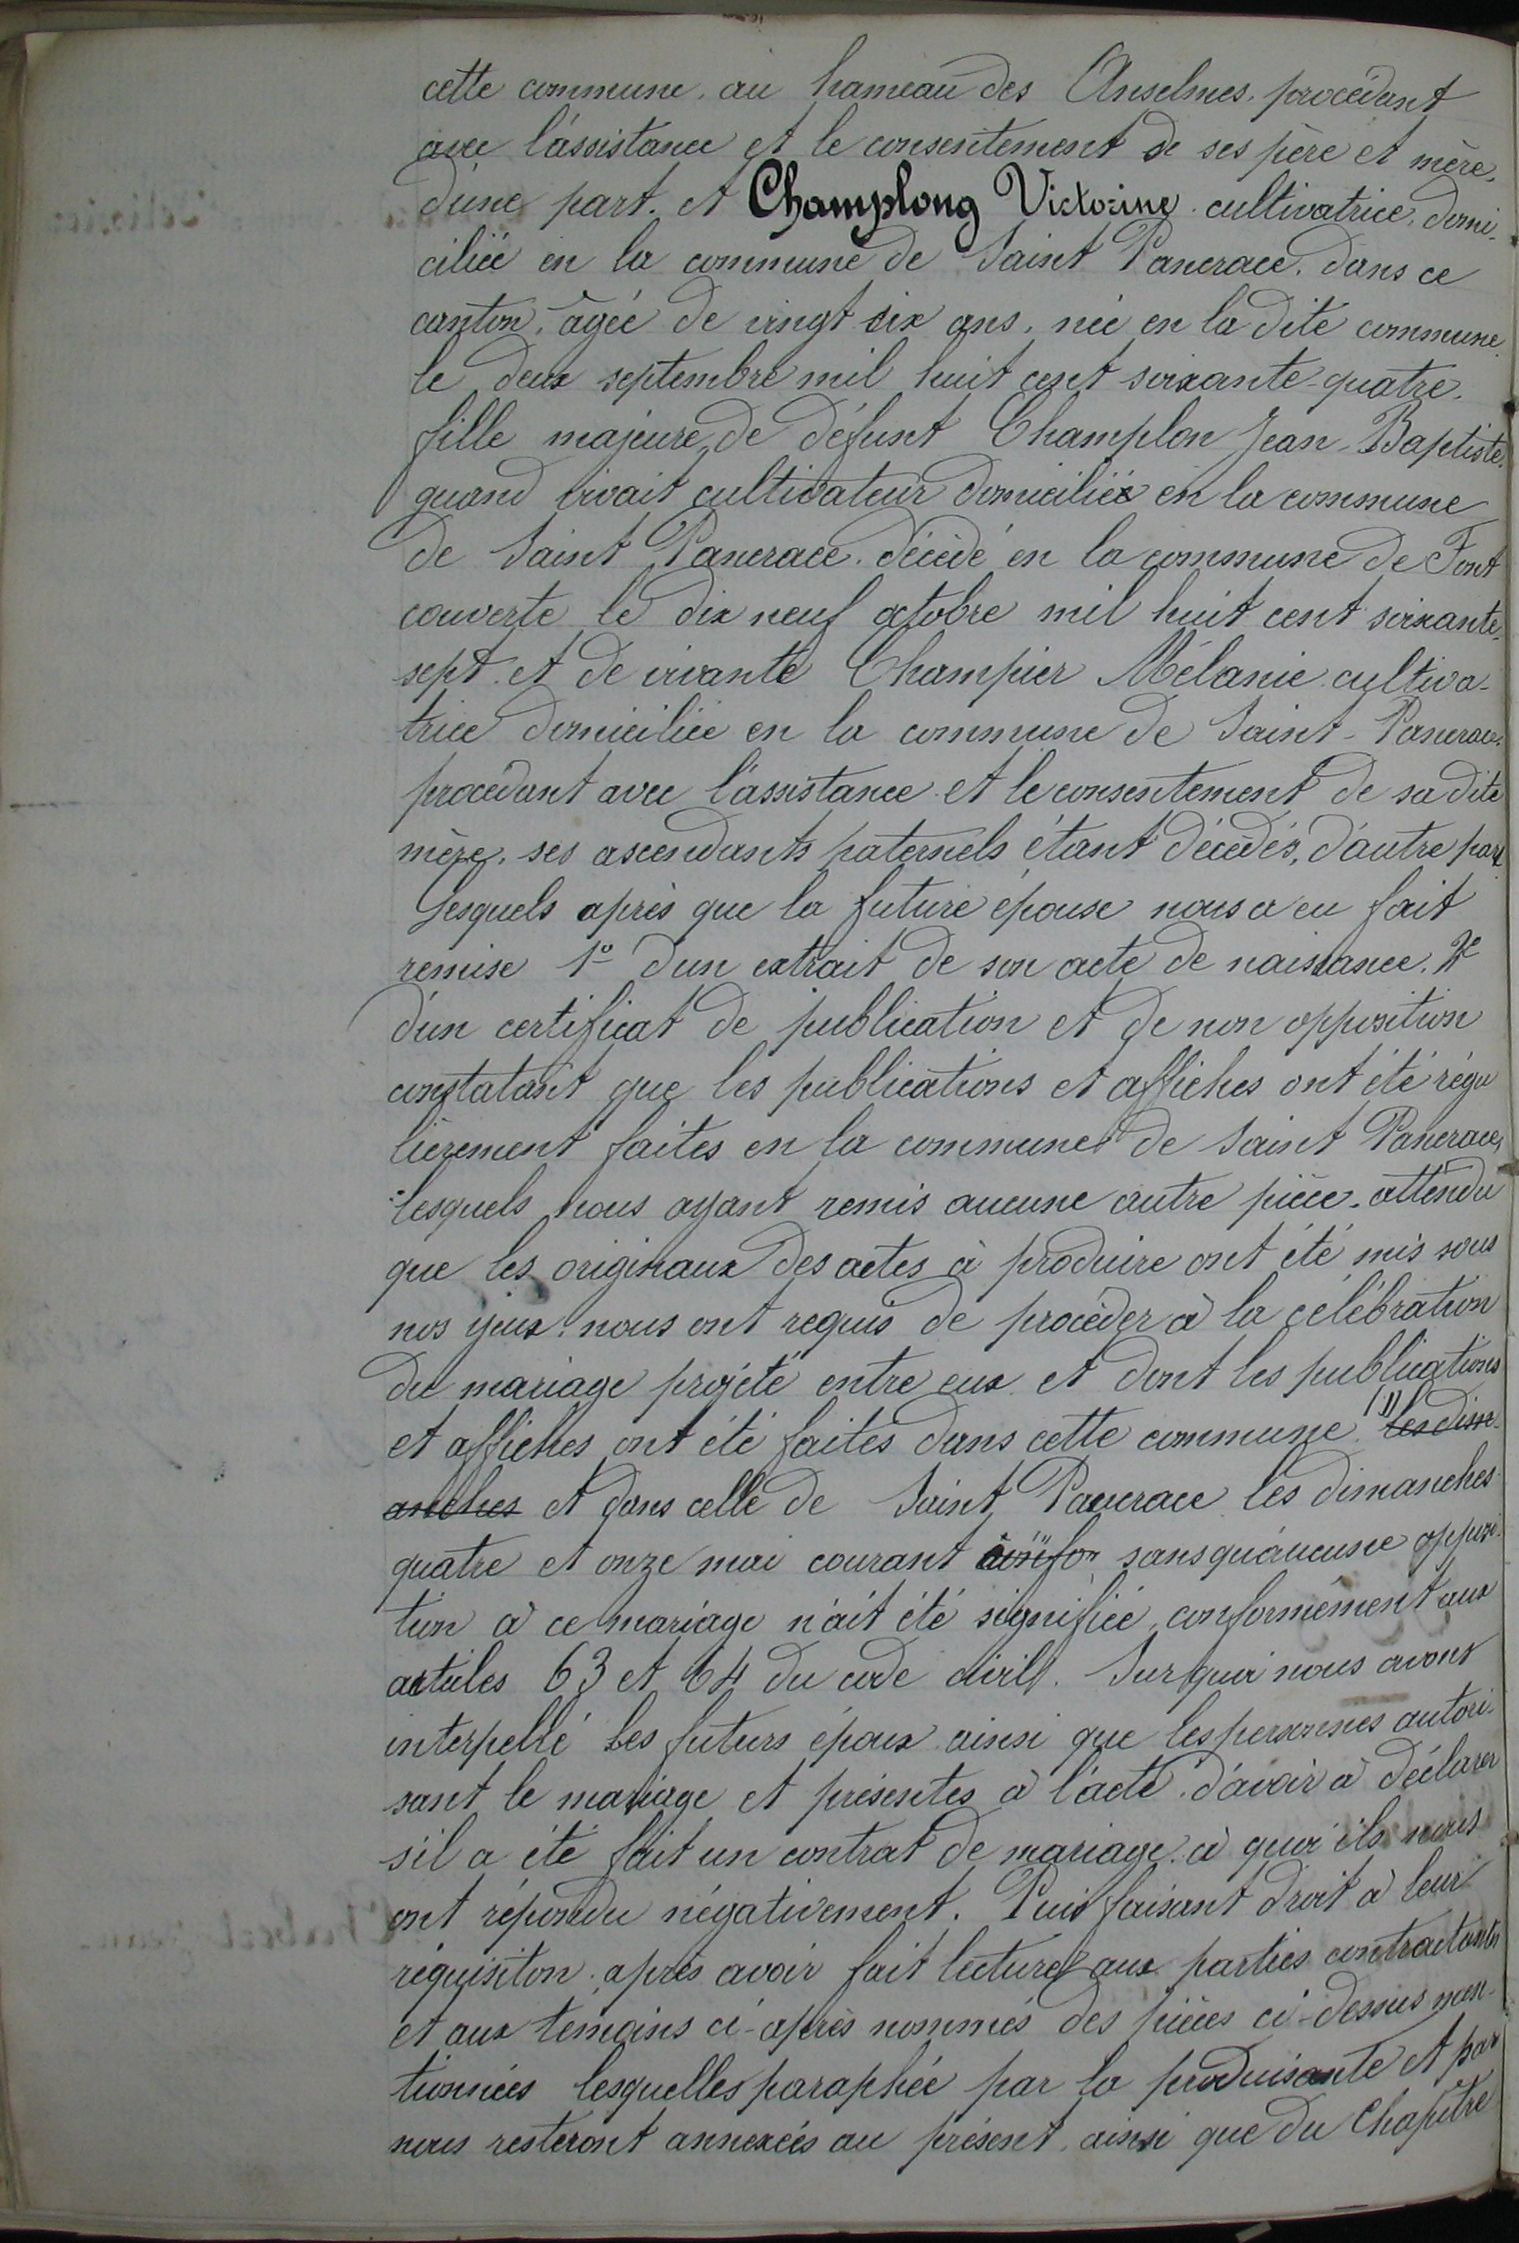 cette commune, au hameau des Anselmes, procédant
avec l'assistance et le consentement de ses père et mère,
d'une part. et Champlong Victorine cultivatrice, domi-
ciliée en la commune de Saint Pancrace, dans ce
canton, âgée de vingt six ans, née en la dite commune
le deux septembre mil huit cent soixante-quatre,
fille majeure de défunt Champlon Jean-Baptiste,
quand vivait cultivateur domiciliée en la commune
de Saint Pancrace, décédé en la commune de Font
couverte le dix neuf octobre mil huit cent soixante,
sept. et de vivante Champier Mélanie cultiva-
trice domiciliée en la commune de Saint-Pancrace,
procédant avec l'assistance et le consentement de sa dite
mère, ses ascendants paternels étant décédés, d'autre part
Lesquels après que la future épouse nous a eu fait
remise 1º d'un extrait de son acte de naissance. 2º
d'un certificat de publication et de non opposition
constatant que les publications et affiches ont été régu
lièrement faites en la commune de Saint Pancrace,
lesquels nous ayant remis aucune autre pièce, attendu
que les originaux des actes à produire ont été mis sous
nos yeux, nous ont requis de procéder à la célébration
du mariage projeté entre eux et dont les publications
et affiches ont été faites dans cette commune (1) les dim-
anches et dans celle de Saint Pancrace les dimanches
quatre et onze mai courant sans qu'aucune opposi-
tion à ce mariage n'ait été signifiée, conformément aux
articles 63 et 64 du code civil. Sur quoi nous avons
interpellé les futurs époux ainsi que les personnes autori-
sant le mariage et présentes à l'acte, d'avoir à déclarer
s'il a été fait un contrat de mariage, à quoi ils nous
ont répondu négativement. Puis faisant droit à leur
réquisiton, après avoir fait lecture aux parties contractantes
et aux témoins ci-après nommés des pièces ci-dessus men-
tionnées lesquelles paraphée par la produisante et par
nous resteront annexées au présent, ainsi que du Chapitre